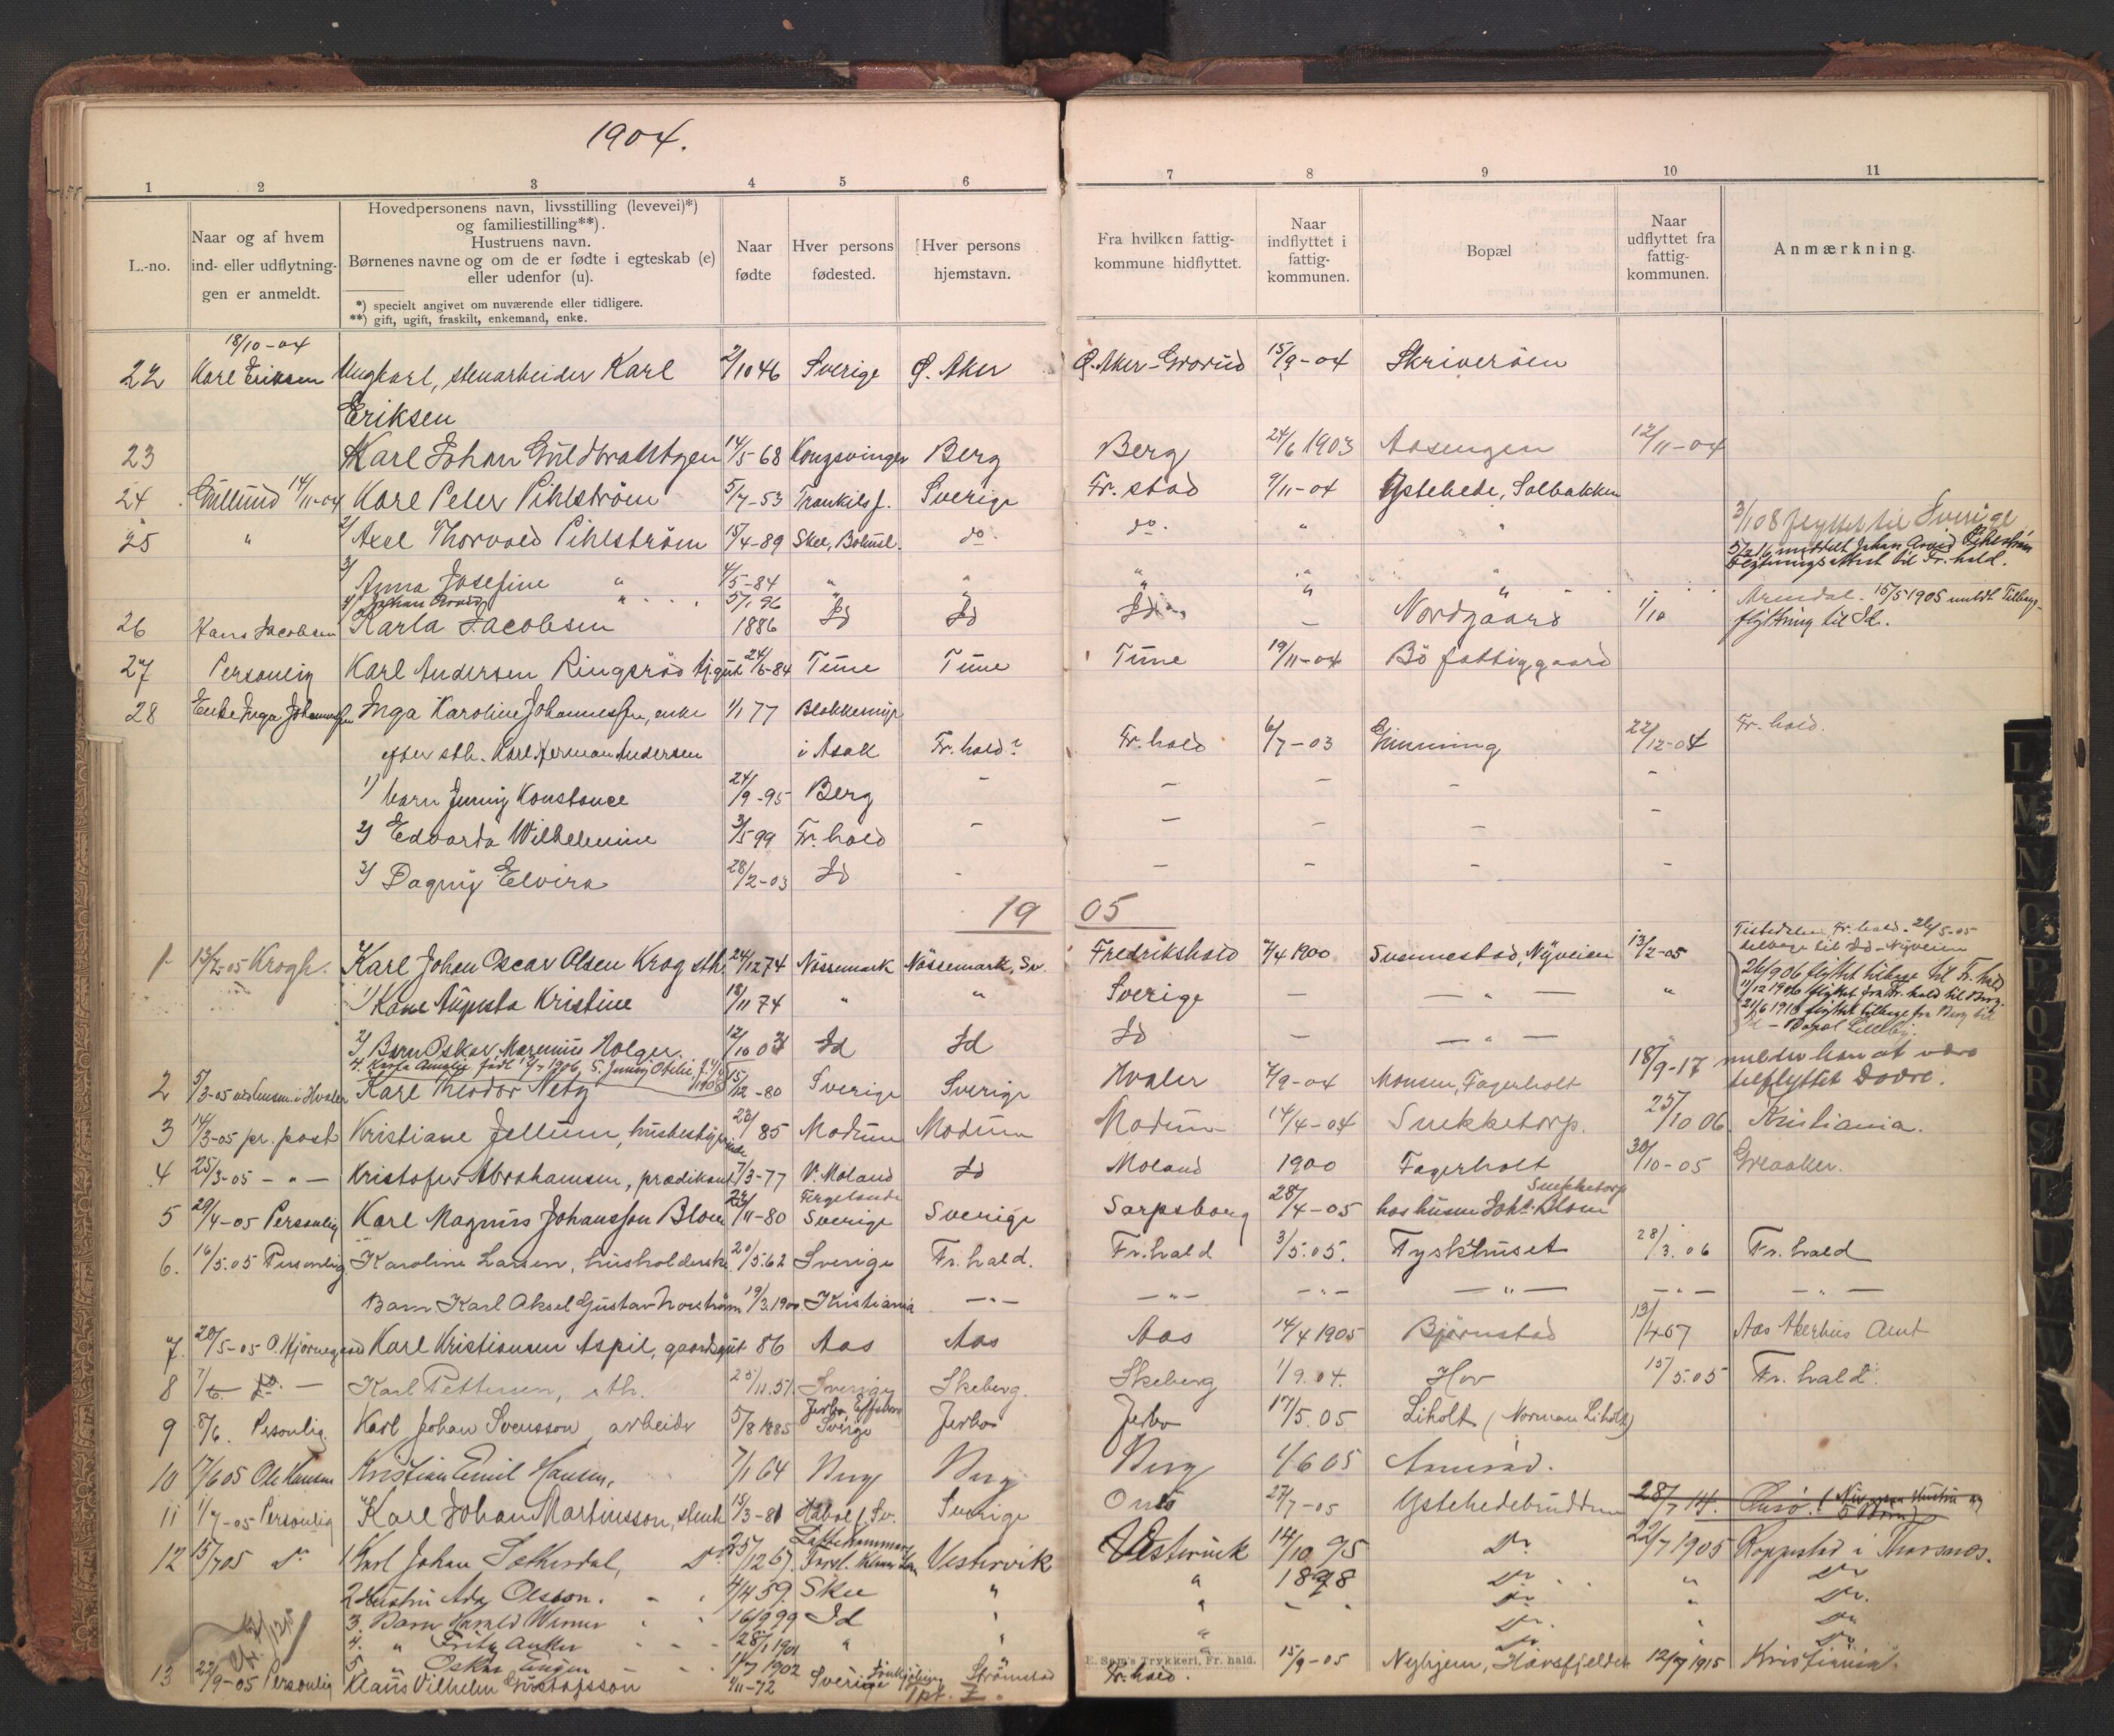 1904.
1 2 3 4 5 6 7 8 9 10 11
L.-no.
Naar og af hvem ind- eller udflytningen er anmeldt.
Hovedpersonens navn, livsstilling (levevei)*)
og familiestilling**).
Hustruens navn.
Børnenes navne og om de er fødte i egteskab (e)
eller udenfor (u).
*) specielt angivet om nuværende eller tidligere.
**) gift, ugift, fraskilt, enkemand, enke.
Naar fødte
Hver persons fødested.
Hver persons hjemstavn.
Fra hvilken fattigkommune hidflyttet.
Naar indflyttet i fattigkommunen.
Bopæl
Naar udflyttet fra fattigkommunen.
Anmærkning.
18/10-04
22 Karl Eriksen Ungkarl, stenarbeider Karl 2/10 46 Sverige Ø. Aker Ø. Aker-Grorud 15/9-04 Skriverøen
Eriksen
23 Karl Johan Guldbrandsen 14/5-68 Kongsvinger Berg Berg 24/6 1903 Aasengen 12/11-04
24 Gullund 14/11-04 Karl Peter Pihlstrøm 5/7-53 Trankils s. Sverige Fr. stad 9/11-04 Ystehede, Solbakken
25 " 2/ Axel Thorvald Pihlstrøm 15/4-89 Skee, Bohusl. do. do. " " 3/1 08 flyttet til Sverige
3/ Anna Josefine " 4/5-84 " " " " " flytningsattest til Fr. hald.
4/ Johan Arvid " 5/1 96
26 Hans Jacobsen Karla Jacobsen 1886 Id Id Id — Nordgaard 1/10 Arendal. 15/5 1905 meldt Tilbageflytning til Id.
27 Personlig Karl Andersen Ringsrød 24/6-84 Tune Tune Tune 19/11-04 Bø fattiggaard
28 Enke Inga Johannessen Inga Karoline Johannessen, enke 1/1 77 Blakkemyr
efter sth. Karl Herman Andersen i Asak Fr. hald? Fr. hald 6/7-03 22/12-04 Fr. hald.
1) barn Jenny Konstance 24/9-95 Berg - - - - -
2) Edvarda Wilhelmine 3/5 99 Fr. hald - - - - -
3) Dagny Elvira 28/2-03 Id - - - - -
19 05
1 13/2-05 Krogh. Karl Johan Oscar Olsen Krog sth. 24/12 74 Nössemark Nössemark, Sv. Fredrikshald 4/4 1900 Svennestad, Nyveien 13/2-05 Tistedalen Fr. hald. 26/5-05 tilbage til Id - Nyveien
1) Kone Augusta Kristine 18/11 74 " " Sverige — — " — " 26/1 906 flyttet tilbage til Fr. hald
11/12 1906 flyttet fra Fr. hald til Berg.
21/6 1910 flyttet tilbage fra Berg til
Id - Bopæl Lilleby.
2) Barn Oskar Marenius Holger. 12/10 03 Id Id Id — — " — "
4. Karla Amalie født 10/7 1906, 5. Jenny Otelie
2 5/3-05 Karl Theodor Netz 15/12-80 Sverige Sverige Hvaler 4/9-04 Monsen, Fagerholt 18/9-17 melder han at være tilflyttet Dovre.
3 14/3-05 pr. post Kristiane Jellum, husbestyrerinde 23/ 85 Modum Modum Modum 14/4-04 Snekketorp. 25/10 06 Kristiania.
4 25/3-05 — " — Kristofer Abrahamsen, prædikant 7/3-77 V. Moland Id Moland 1900 Fagerholt 30/10-05 Greaaker.
5 29/4-05 Personlig Karl Magnus Johansson Blom 23/11-80 Sverige Sverige Sarpsborg 28/4-05 hos husm. Johs. Blom Snekketorp
6. 16/5.05 Personlig Karoline Larsen, husholderske 20/5.62 Sverige Fr. hald. Fr. hald 3/5.05. Tyskhuset 28/3.06 Fr. hald
Barn Karl Aksel Gustav Norstrøm 19/3.1900 Kristiania — " — — " — — " — — " — — " — — " —
7. 20/5-05 O. Hjørnegaard Karl Kristiansen Aspil, gaardsgut 86 Aas Aas Aas 14/4 1905 Bjørnstad 13/4 07 Aas Akerhus Amt
8 7/6 Do. — Karl Pettersen, sth. 25/11.51. Sverige Skeberg. Skeberg 1/9.04. Hov 15/5.05 Fr. hald.
9 8/6. Personlig. Karl Johan Svensson, arbeider 5/8 1885 Sverge Jerbo Jerbo 17/5.05 Liholt (Norman Liholt)
10 17/6 05 Ole Hansen Kristian Emil Hansen. 7/1 64 Berg Berg Berg 1/6 05
11 1/7-05 Personlig Karl Johan Martinsson, stenh. 15/3-81 Håbol, Sv. Sverige Onsø 27/7-05 Ystehedebrudden 28/7 14. Onsø.
12 15/7 05 Do 1 Karl Johan Do 25/12 67 Vestervik Vestervik 14/10 95 Do 22/7 1905 i Thorsnes.
2 Hustru Ada Olsson. 4/4 59. Skee " " 1898 Do " Do
3. Barn Harald Werner 16/9 99 Id " " - Do " Do.
4. " Fritz Anker 28/1 1901 " " " Do " Do
5 " Oskar Eugen 1/7 1902 " " Do Do
13 22/9-05 Personlig Klaus Vilhelm Gustafsson 4/11-72 Sverige Jönköping Strømstad Fr. hald. 15/9-05 Nyhjem, Havsfjeldet 12/7 1915 Kristiania.
E. Sem's Trykkeri, Fr. hald.
L
M
N
O
P
Q
R
S